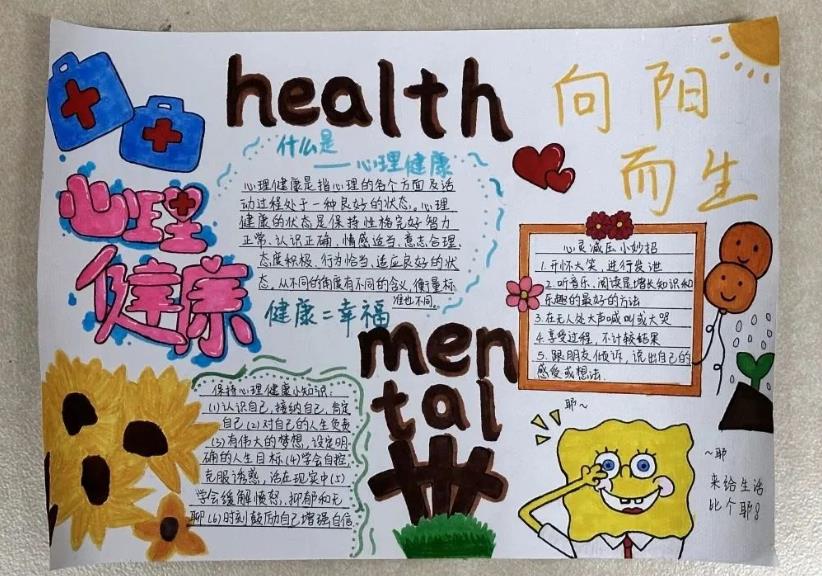 health
向阳
而生
什么是
——心理健康
心理健康是指心理的各个方面及活
动过程处于一种良好的状态。心理
健康的状态是保持性格完好智力
正常、认识正确、情感适当、意志合理、
态度积极、行为恰当、适应良好的状
态。从不同的角度有不同的含义,衡量标
准也不同。
心理
健康
健康=幸福
心灵减压小妙招
1.开怀大笑,进行发泄
2.听音乐,阅读是增长知识和
乐趣的最好的方法
3.在无人处大声喊叫或大哭
4.享受过程,不计较结果
5.跟朋友倾诉,说出自己的
感受或想法.
men
tal
保持心理健康小知识:
(1)认识自己,接纳自己,肯定
自己(2)对自己的人生负责
(3)有伟大的梦想,设定明
确的人生目标(4)学会自控,
克服诱惑,活在现实中(5)
学会缓解愤怒、抑郁和无
聊(6)时刻鼓励自己增强自信
耶~
~耶
来给生活
比个耶!